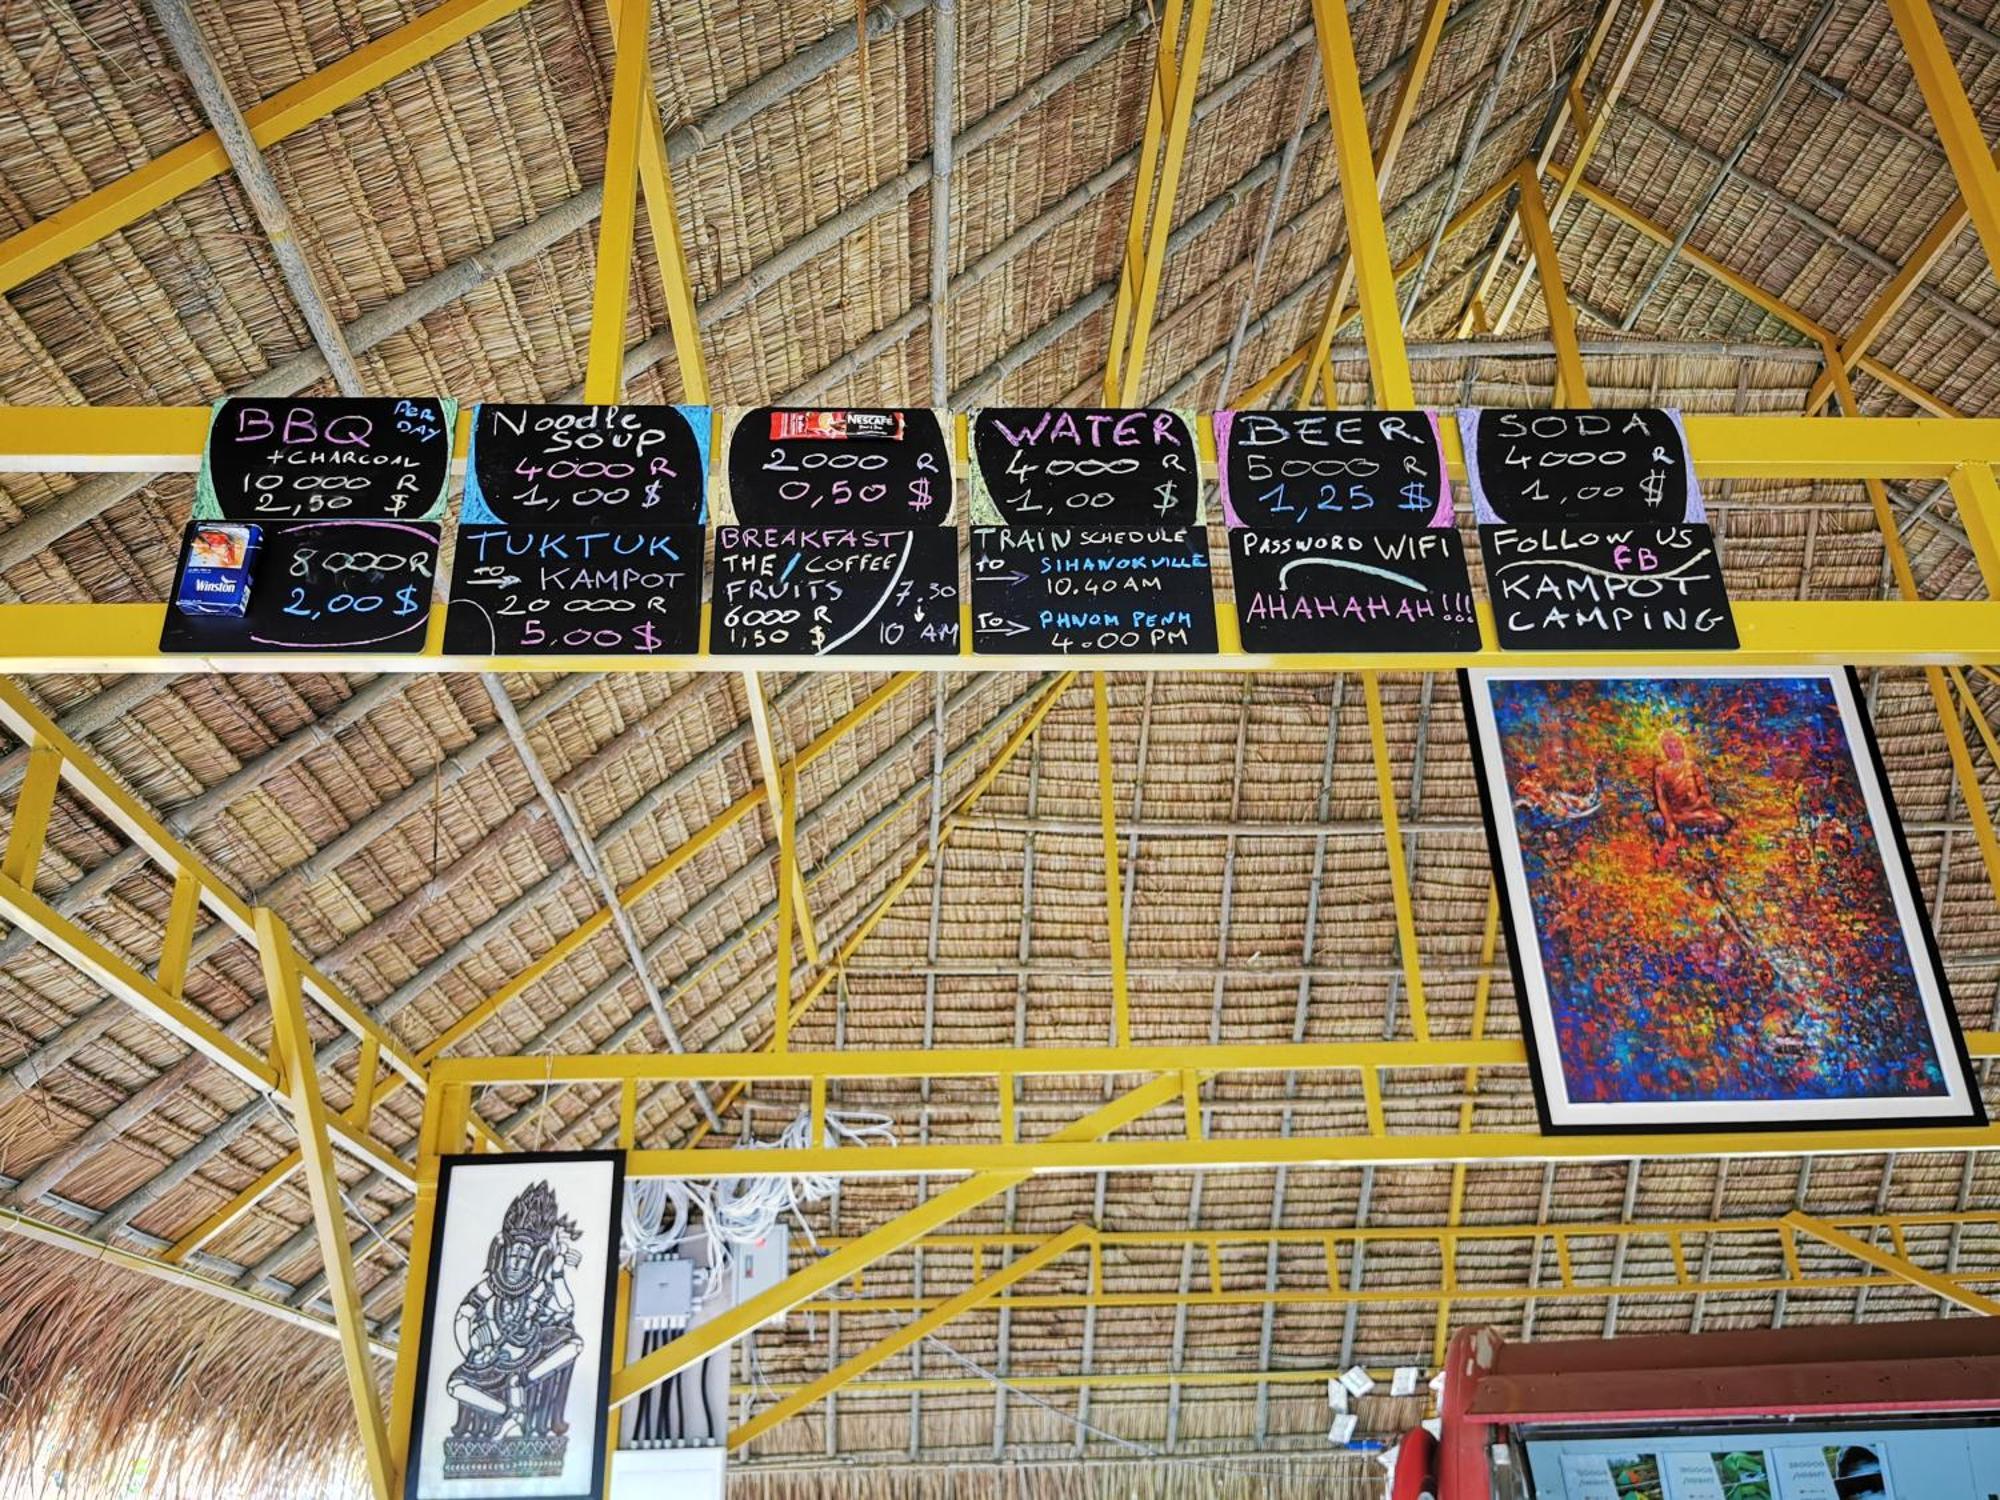 BBQ PER DAY
+CHARCOAL
10 000 R
2,50 $
Noodle
SOUP
4000 R
1,00 $
NESCAFÉ
2000 R
0,50 $
WATER
4000 R
1,00 $
BEER
5000 R
1,25 $
SODA
4000 R
1,00 $
Winston
8000R
2,00 $
TUKTUK
TO KAMPOT
20 000 R
5,00 $
BREAKFAST
THE / COFFEE
FRUITS
6000 R
1,50 $
7.30
10 AM
TRAIN SCHEDULE
TO SIHANOKVILLE
10.40 AM
TO PHNOM PENH
4.00 PM
PASSWORD WIFI
AHAHAHAH!!!
FOLLOW US
FB
KAMPOT
CAMPING